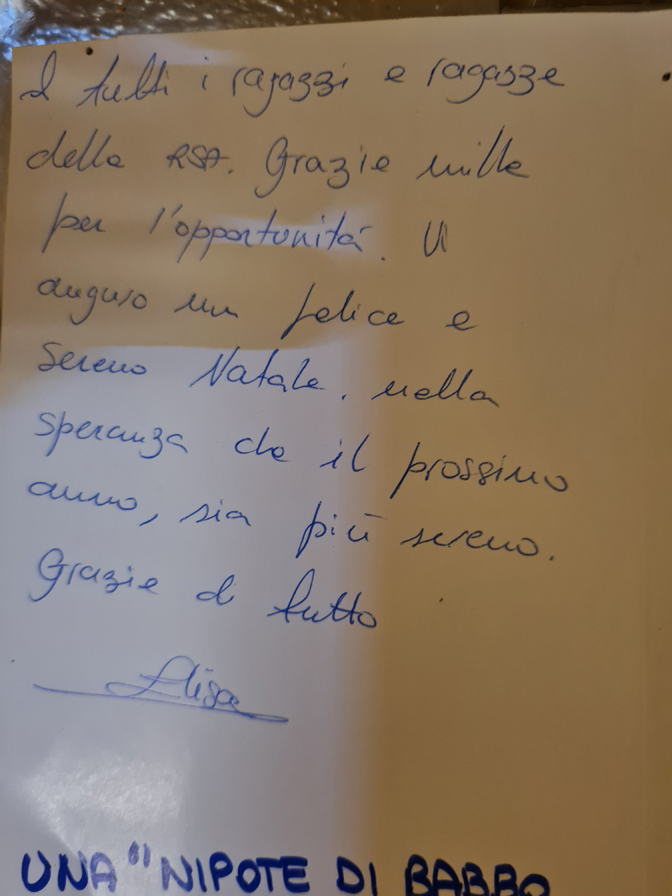 A tutti i ragazzi e ragazze
della RSA. Grazie mille
per l'opportunità. Vi
auguro un felice e
sereno Natale, nella
speranza che il prossimo
anno, sia più sereno.
Grazie di tutto
Elisa
UNA "NIPOTE DI BABBO